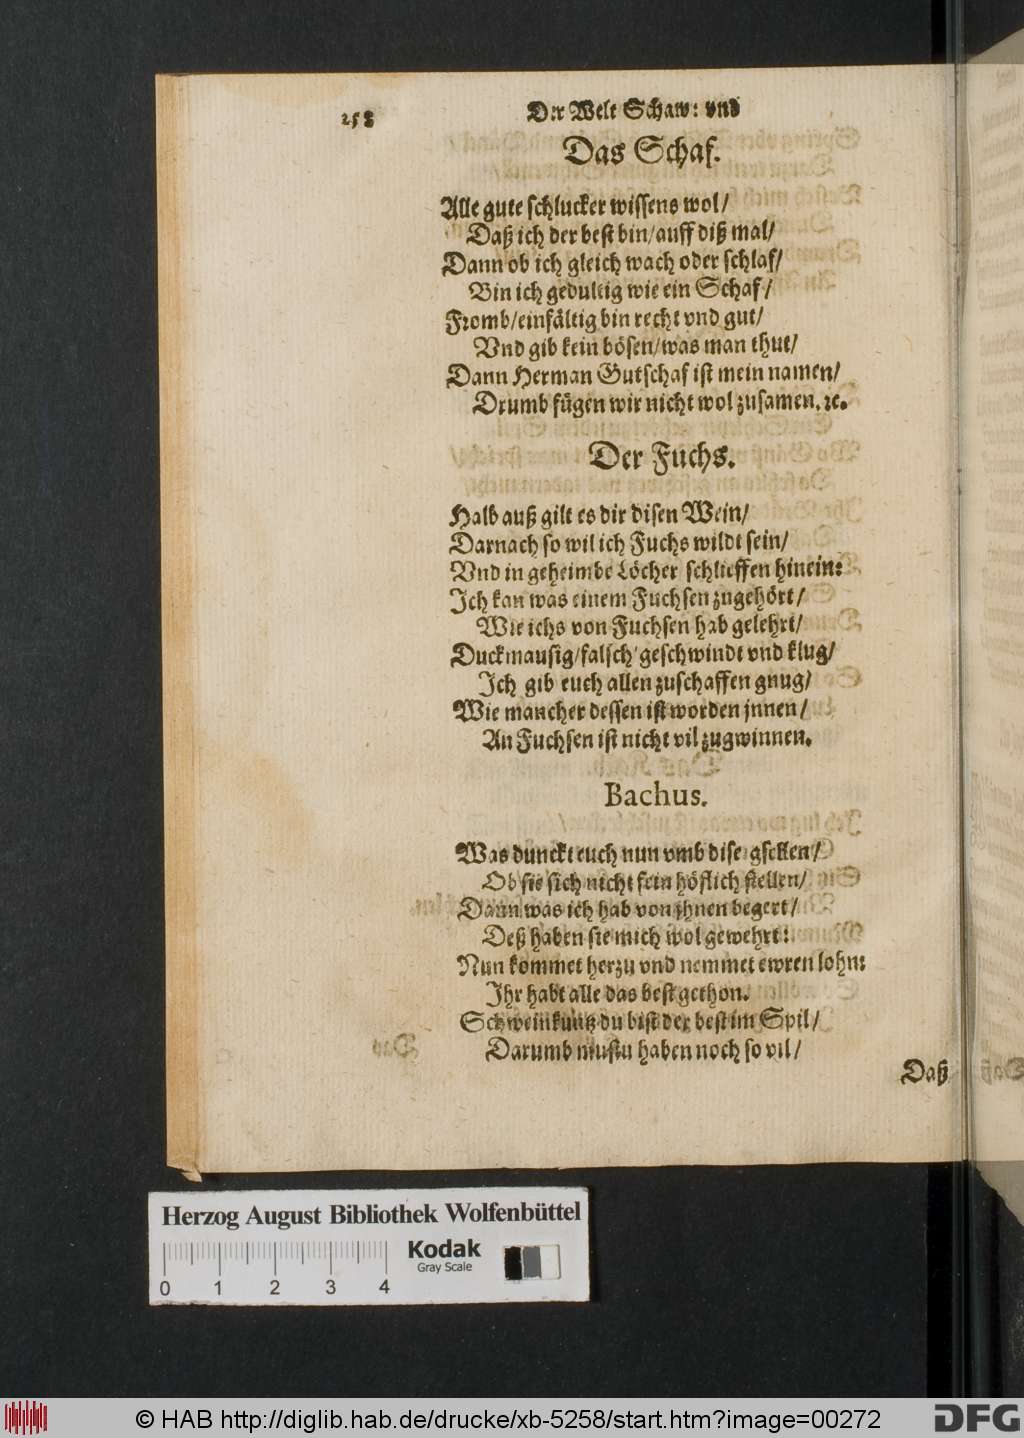 258
Der Welt Schaw: vnd
Das Schaf.
Alle gute schlucker wissens wol/
Daß ich der best bin/auff diß mal/
Dann ob ich gleich wach oder schlaf/
Bin ich gedultig wie ein Schaf/
Fromb/einfältig bin recht vnd gut/
Vnd gib kein bösen/was man thut/
Dann Herman Gutschaf ist mein namen/
Drumb fügen wir nicht wol zusamen. ꝛc.
Der Fuchs.
Halb auß gilt es dir disen Wein/
Darnach so wil ich Fuchs wildt sein/
Vnd in geheimbe Löcher schlieffen hinein:
Ich kan was einem Fuchsen zugehört/
Wie ichs von Fuchsen hab gelehrt/
Duckmausig/falsch/geschwindt vnd klug/
Ich gib euch allen zuschaffen gnug/
Wie mancher dessen ist worden jnnen/
An Fuchsen ist nicht vil zugwinnen.
Bachus.
Was dunckt euch nun vmb dise gsellen/
Ob sie sich nicht fein höflich stellen/
Dann was ich hab von jhnen begert/
Deß haben sie mich wol gewehrt:
Nun kommet herzu vnd nemmet ewren lohn:
Ihr habt alle das best gethon.
Schweinkuntz du bist der best im Spil/
Darumb mustu haben noch so vil/
Daß
Herzog August Bibliothek Wolfenbüttel
Kodak
Gray Scale
0 1 2 3 4
© HAB http://diglib.hab.de/drucke/xb-5258/start.htm?image=00272
DFG